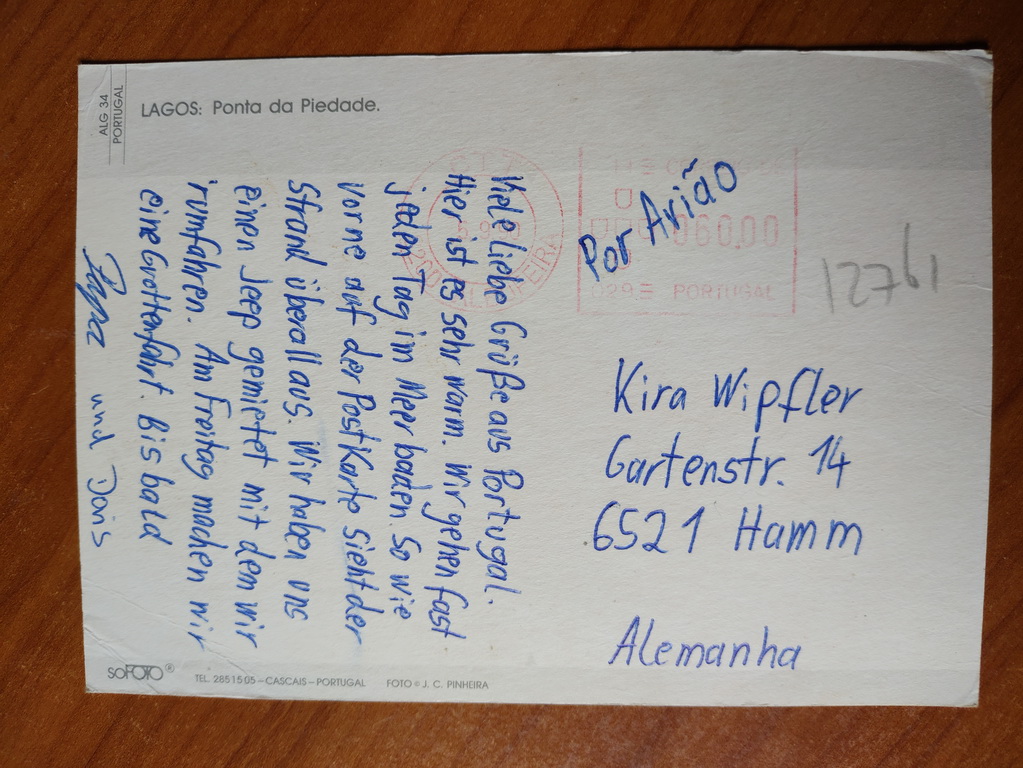 LAGOS: Ponta da Piedade.
ALG 34
PORTUGAL
Viele liebe Grüße aus Portugal.
Hier ist es sehr warm. Wir gehen fast
jeden Tag im Meer baden. So wie
vorne auf der Postkarte sieht der
Strand überall aus. Wir haben uns
einen Jeep gemietet mit dem wir
'rumfahren. Am Freitag machen wir
eine Grottenfahrt. Bis bald
Papa und Doris
Por Avião
060.00
PORTUGAL
12761
Kira Wipfler
Gartenstr. 14
6521 Hamm
Alemanha
soFOTO®
TEL. 2851505–CASCAIS–PORTUGAL FOTO © J. C. PINHEIRA